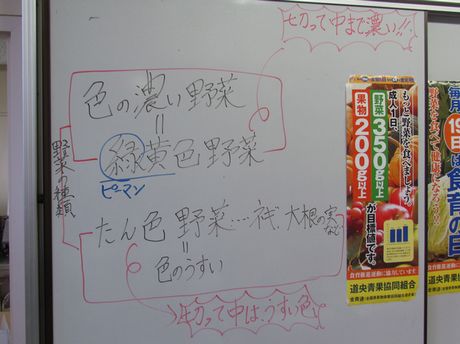 切って中まで濃い!!
色の濃い野菜
=
緑黄色野菜
ピーマン
野菜の種類
たん色野菜…ねぎ、大根の実など
=
色のうすい
切って中は、うすい色
もっと野菜を食べましょう。
成人1日、
野菜350g以上
果物200g以上
が目標です。
食育推進運動に協力しています
道央青果協同組合
毎月19日は食育の日
野菜を食べて健康になろう!!